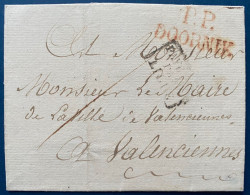 P.P.
DOORNIK
A Monsieur
Monsieur Le Maire
de La Ville de Valenciennes
a Valenciennes